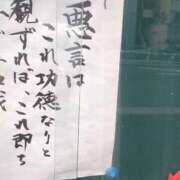 悪言は
これ功徳なりと
観ずれば、これ即ち